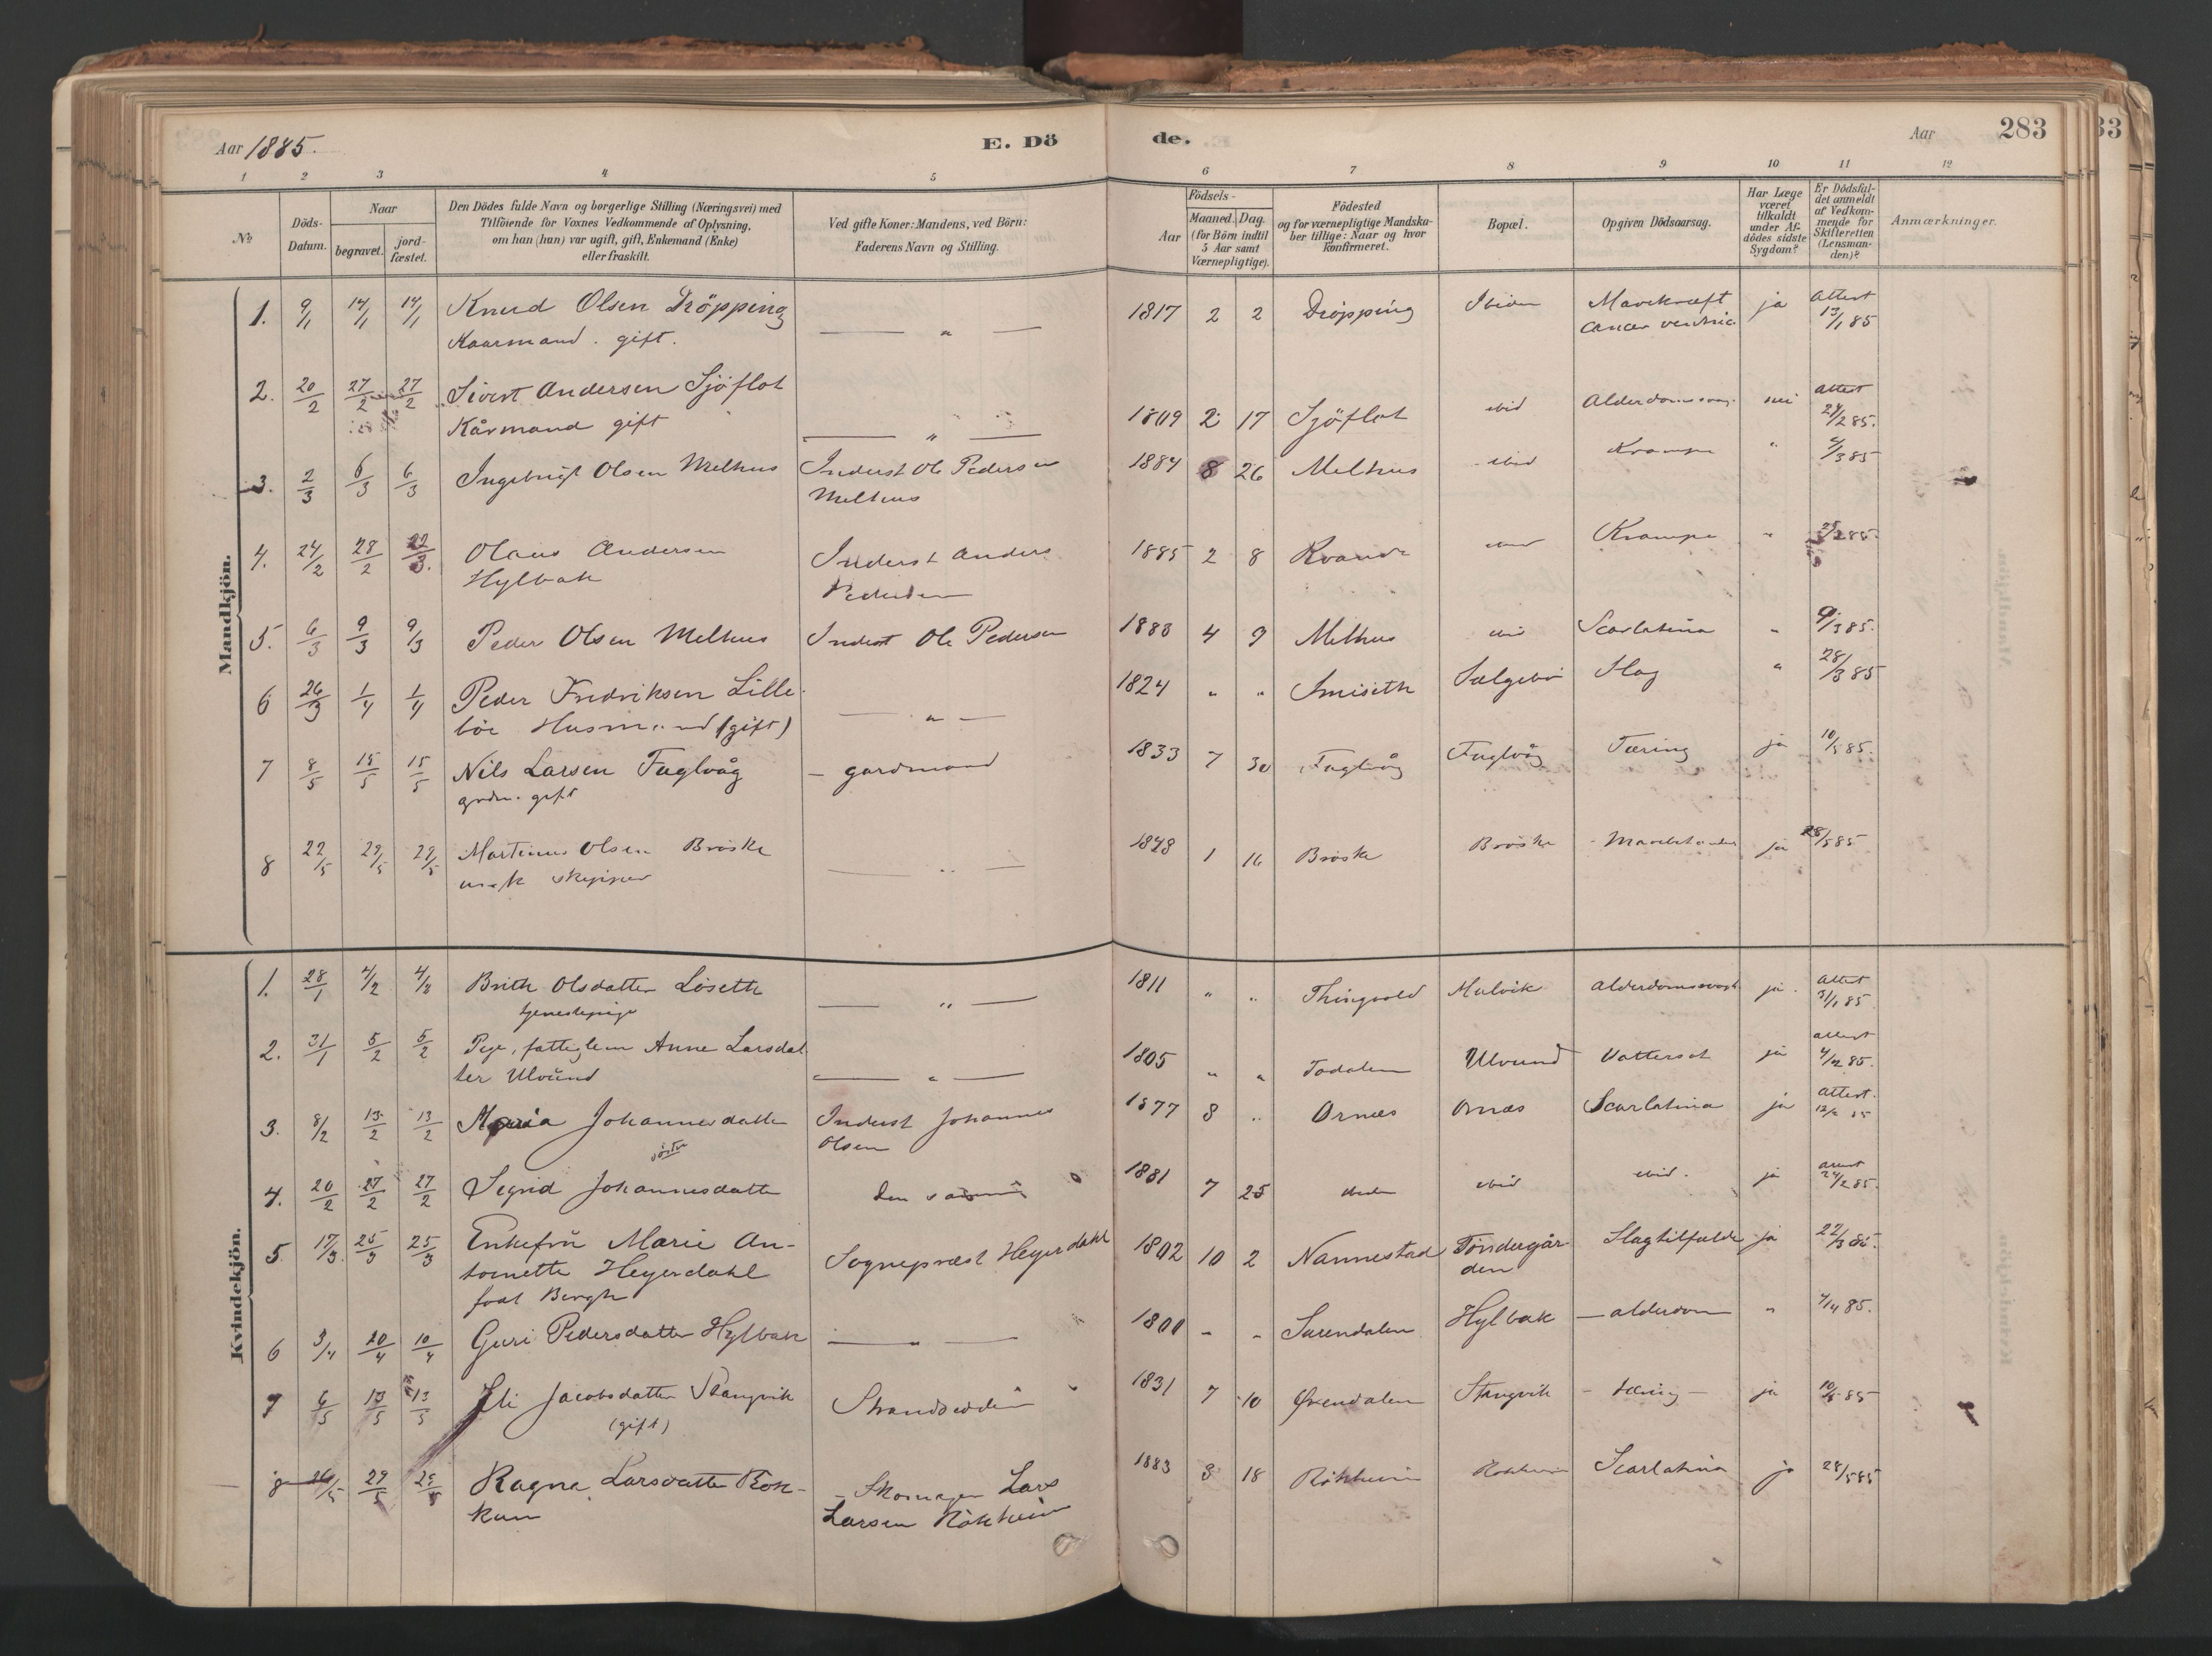 Aar 1885.
E. Dö
de.
Aar
283
33
1 2 3 4 5 6 7 8 9 10 11 12
No
Döds-Datum.
Naar
begravet.
jord-fæstet.
Den Dödes fulde Navn og borgerlige Stilling (Næringsvei) med
Tilföiende for Voxnes Vedkommende af Oplysning,
om han (hun) var ugift, gift, Enkemand (Enke)
eller fraskilt.
Ved gifte Koner: Mandens, ved Börn:
Faderens Navn og Stilling.
Födsels-
Aar
Maaned. Dag.
(for Börn indtil
5 Aar samt
Værnepligtige).
Födested
og for værnepligtige Mandska-
ber tillige: Naar og hvor
Konfirmeret.
Bopæl.
Opgiven Dödsaarsag.
Har Læge
været
tilkaldt
under Af-
dödes sidste
Sygdom?
Er Dödsfal-
det anmeldt
af Vedkom-
mende for
Skifteretten
(Lensman-
den)?
Anmærkninger.
Mandkjön.
1. 9/1 14/1 14/1 Knud Olsen Dröpping — " — 1817 2 2 Dröpping Ibiden Mavekræft ja Attest
Kaarmand. gift. cancer 13/1 85
2. 20/2 27/2 27/2 Sivert Andersen Sjöflot 1809 2 17 Sjöflot ibid nei Attest
Kårmand gift — " — 24/2 85.
3. 2/3 6/3 6/3 Ingebrigt Olsen Melhus Inderst Ole Pedersen 1884 8 26 Melhus ibid Krampe " 4/3 85
Melhus
4. 24/2 28/2 22/3. Olaus Andersen Inderst Anders 1885 2 8 Kvande Krampe "
Hylbak Pedersen
5. 6/3 9/3 9/3 Peder Olsen Melhus Inderst Ole Pedersen 1883 4 9 Melhus ibid Scarlatina " 9/3 85.
6 26/3 1/4 1/4 Peder Fredriksen Lille- — " — 1824 " " Smiseth Slag " 28/3 85
böe Husmand (gift)
7 8/5 15/5 15/5 Nils Larsen Fuglvåg - gardmand 1833 7 30 Fuglvåg Fuglvåg Tæring ja 10/5 85.
grdm. gift
8 22/5 29/5 29/5 Martinus Olsen Bröske — " — 1848 1 16 Bröske Bröske ja 28/5 85
skipper
Kvindekjön.
1. 28/1 4/2 4/2 Brith Olsdatter Löseth — " — 1811 " " Thingvold Mulvik Alderdomssvagh. ja. Attest
tjenestepige 31/1 85.
2. 31/1 5/2 5/2 Pige, fattiglem Anne Larsdat- 1805 " " Todalen Ulvund Vattersot ja attest
ter Ulvund — " — 4/2 85.
3. 8/2 13/2 13/2 Maria Johannesdatter Inderst Johannes 1877 8 " Ornæs Ornæs Scarlatina ja Attest.
Olsen 12/2 85
4. 20/2 27/2 27/2 Sigrid Johannesdatter den samme 1881 7 25 ibiden ibid ibid. ja attest
24/2 85.
5. 17/3. 25/3 25/3 Enkefru Marie An- Sognepræst Heyerdahl 1802 10 2 Nannestad Töndergår- Slagtilfælde ja 22/3 85.
toinette Heyerdahl den
født Bergh
6 3/4 20/4 10/4 Guri Pedersdatter Hylbak — " — 1800 " " Surendalen Hylbak — alderdom " 7/4 85.
7 6/5 13/5 13/5 Eli Jacobsdatter Stangvik Strandsidder 1831 7 10 Øxendalen Stangvik - tæring - ja 10/5 85
(gift)
8 26/5 29/5 29/5 Ragna Larsdatter Rok- - Skomager Lars 1883 3 18 Rökheim Rokheim Scarlatina ja 28/5 85
kum Larsen Rökheim